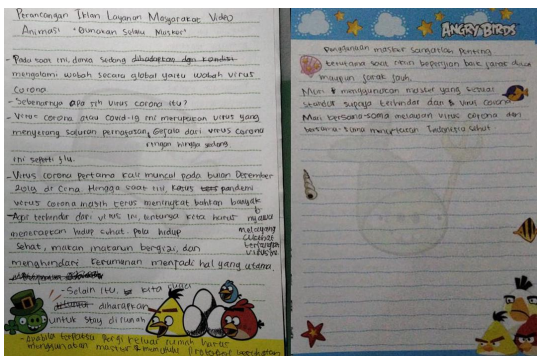 Perancangan Iklan Layanan Masyarakat Video
Animasi "Gunakan Selalu Masker"
- Pada saat ini dunia sedang dihadapkan dgn kondisi
mengalami wabah secara global yaitu wabah virus
corona
- Sebenarnya apa sih virus corona itu?
- Virus corona atau Covid-19 ini merupakan virus yang
menyerang saluran pernapasan, Gejala dari virus corona
ringan hingga sedang
ini seperti flu.
- Virus corona pertama kali muncul pada bulan Desember
2019 di Cina. Hingga saat ini, kasus pandemi
virus corona masih terus meningkat bahkan banyak
nyawa
melayang
akibat
terjangkit
virus ini
- Agar terhindar dari virus ini, tentunya kita harus
menerapkan hidup sehat. pola hidup
sehat, makan makanan bergizi, dan
menghindari kerumunan menjadi hal yang utama.
- Selain itu, kita
diharapkan
untuk stay dirumah
- apabila terpaksa pergi keluar rumah harus
menggunakan masker & mengikuti protokol kesehatan
ANGRY BIRDS
Penggunaan masker sangatlah penting
terutama saat bepergian baik jarak dekat
maupun jarak jauh.
Mari menggunakan masker yang sesuai
standar supaya terhindar dari virus corona
Mari bersama-sama melawan virus corona dan
bersama-sama menyehatkan Indonesia sehat